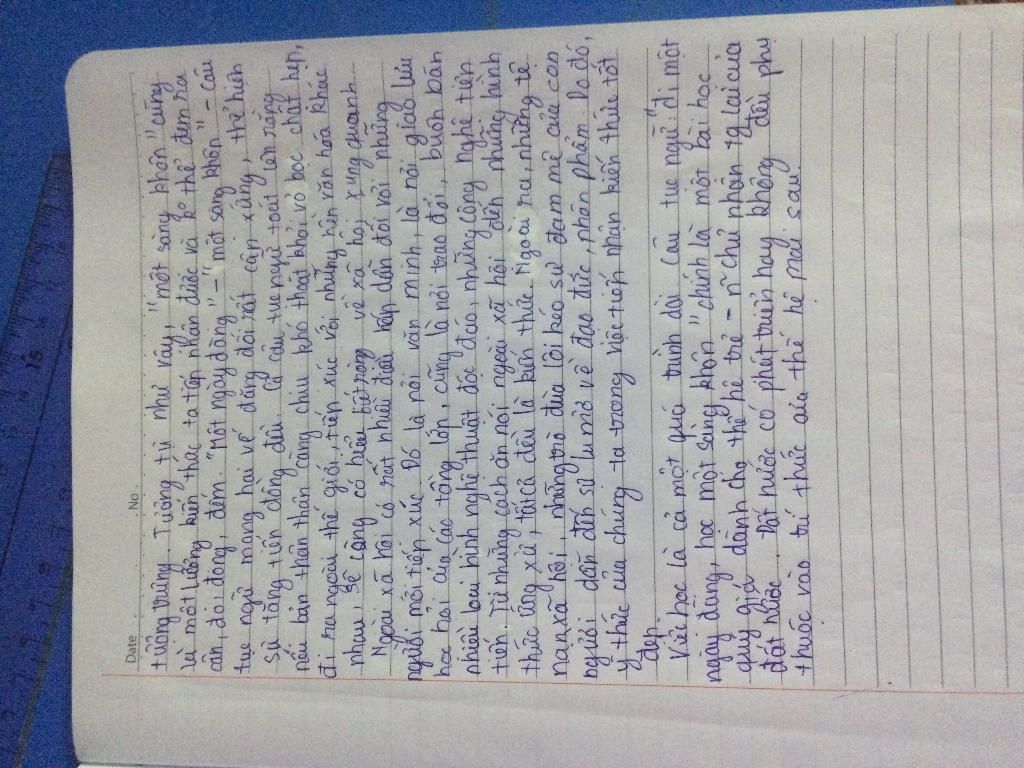 Date No.
tượng trưng. Tương tự như vậy, "một sàng khôn" cũng
là một lượng kiến thức ta tiếp nhận được và ko thể đem ra
cân, đo, đong, đếm. "Một ngày đàng" - "một sàng khôn" - câu
tục ngữ mang hai vế đăng đối rất cân xứng, thể hiện
sự tăng tiến đồng đều. Cả câu tục ngữ toát lên rằng
nếu bản thân càng chịu khó thoát khỏi vỏ bọc chật hẹp,
đi ra ngoài thế giới, tiếp xúc với những nền văn hóa khác
nhau, sẽ càng có hiểu biết rộng về xã hội xung quanh.
Ngoài xã hội có rất nhiều điều hấp dẫn đối với những
người mới tiếp xúc. Đó là nơi văn minh, là nơi giao lưu
học hỏi của các tầng lớp, cũng là nơi trao đổi, buôn bán
nhiều loại hình nghệ thuật độc đáo, những công nghệ tiên
tiến. Từ những cách ăn nói ngoài xã hội đến những hành
thức ứng xử, tất cả đều là kiến thức. Ngoài ra, những tệ
nạn xã hội, những trò đùa lôi kéo sự đam mê của con
người dẫn đến sự lu mờ về đạo đức, nhân phẩm. Do đó,
ý thức của chúng ta trong việc tiếp nhận kiến thức tốt
đẹp.
Việc học là cả một quá trình dài. Câu tục ngữ "đi một
ngày đàng, học một sàng khôn" chính là một bài học
quý giá dành cho thế hệ trẻ - n~ chủ nhân tg lai của
đất nước. Đất nước có phát triển hay không đều phụ
thuộc vào trí thức của thế hệ mai sau.